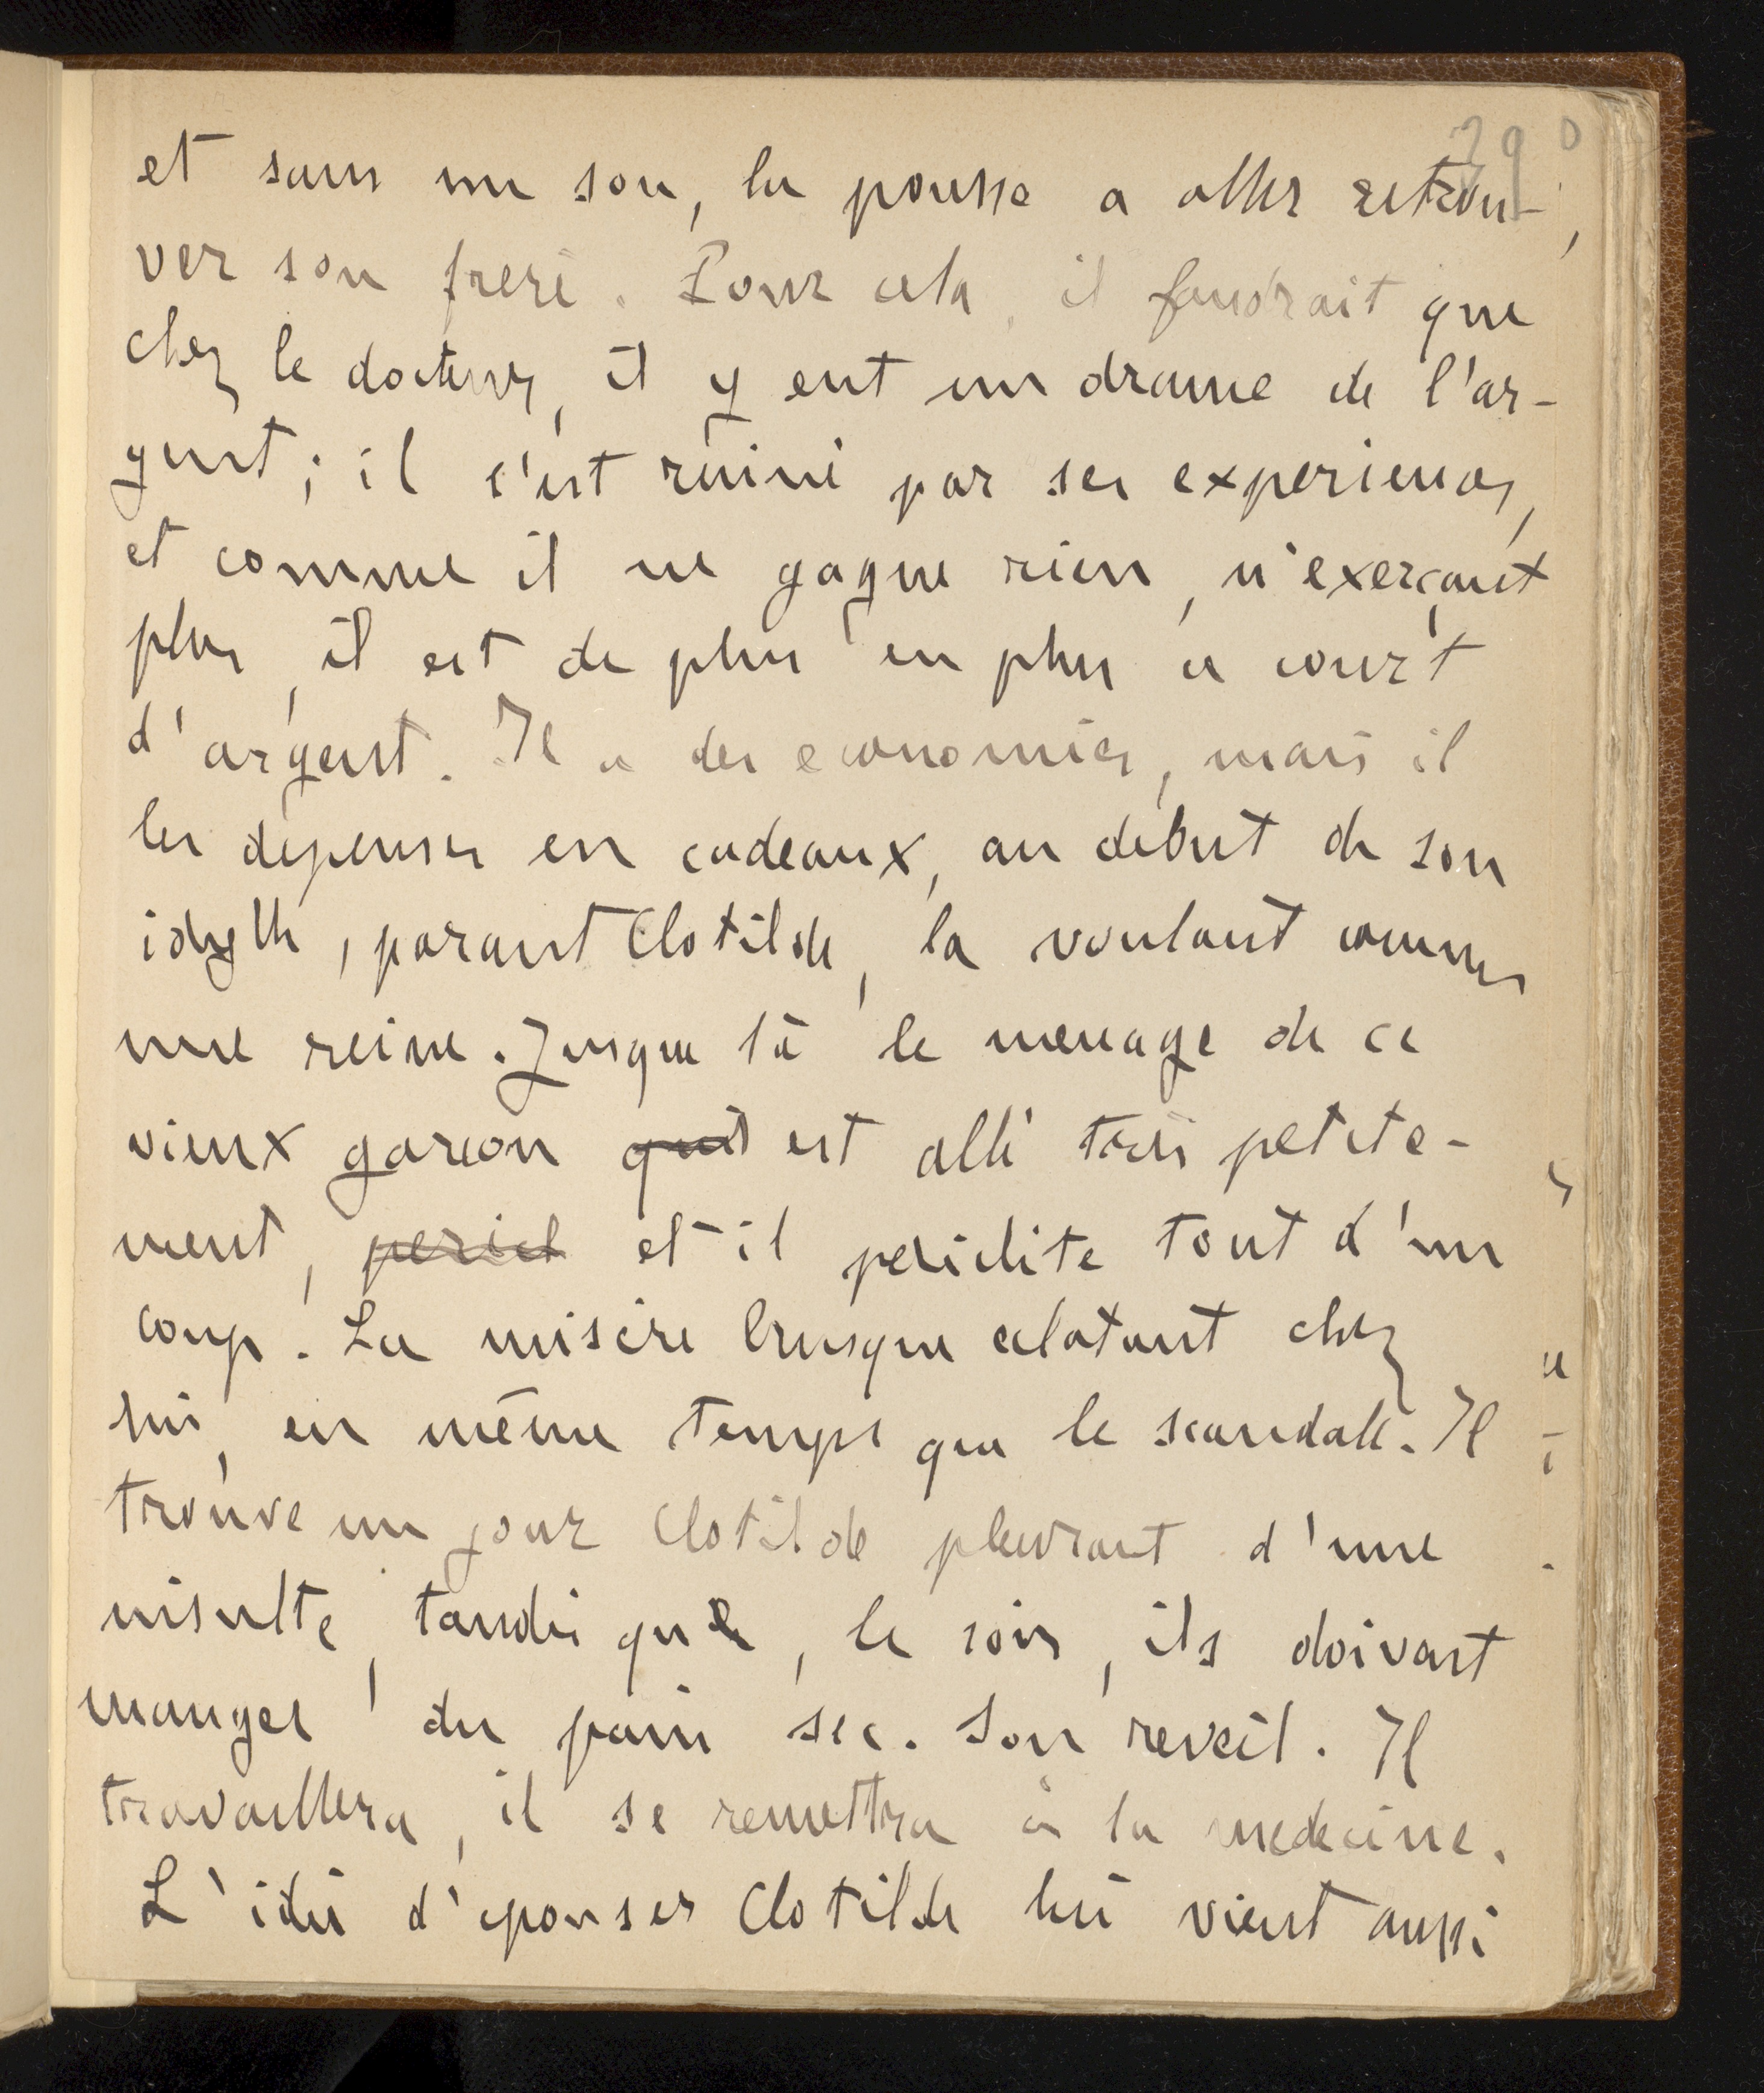 290
et sans un sou, la pousse a aller retrou-
ver son frere. Pour cela, il faudrait que
chez le docteur, il y eut un drame de l'ar-
gent ; il s'est ruiné par ses experiences,
et comme il ne gagne rien, n'exerçant
plus, il est de plus en plus a court
d'argent. Il a des economies, mais il
les depenses en cadeaux, au debut de son
idylle, parant Clotilde, la voulant comme
une reine. Jusque là le menage de ce
vieux garcon est allé très petite-
ment, pericl et il periclite tout d'un
coup. La misère brusque eclatant chez
lui, en même temps que le scandale. Il
trouve un jour Clotilde pleurant d'une
insulte, tandis que, le soir, ils doivent
manger du pain sec. Son reveil. Il
travaillera, il se remettra à la medecine.
L'idée d'epouser Clotilde lui vient aussi